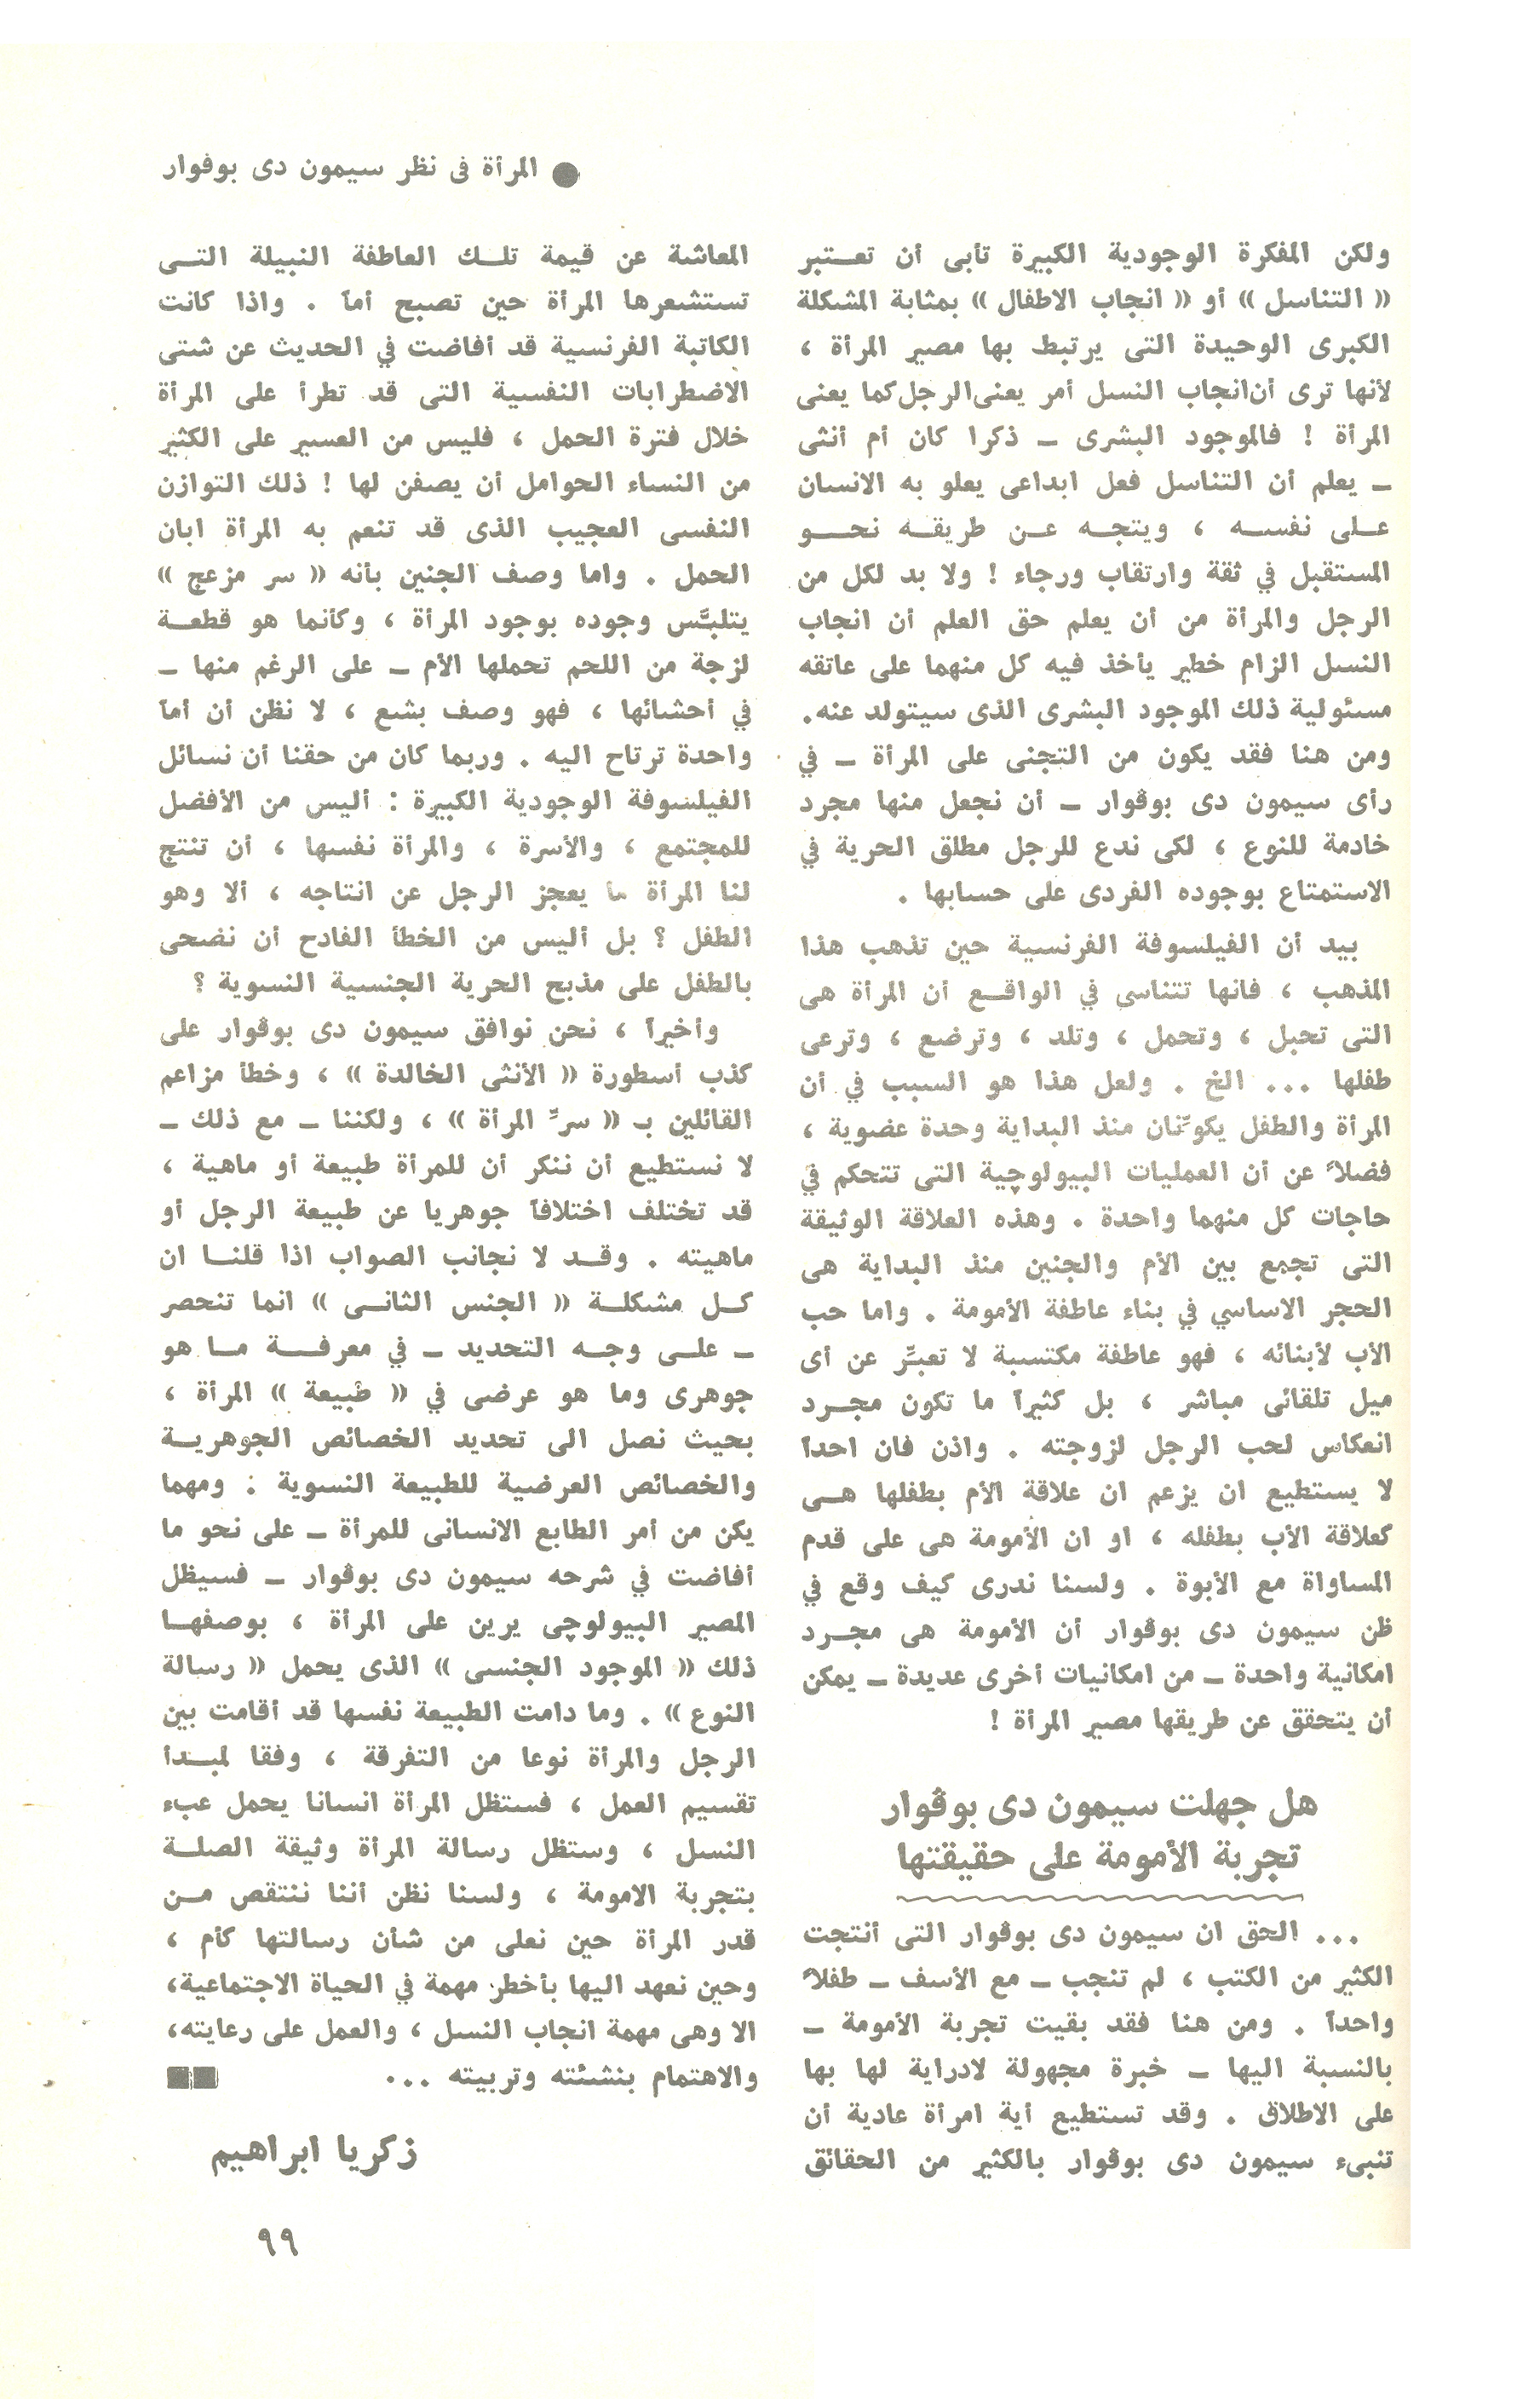 ● المرأة فى نظر سيمون دى بوفوار
ولكن المفكرة الوجودية الكبيرة تأبى أن تعتبر
« التناسل » أو « انجاب الاطفال » بمثابة المشكلة
الكبرى الوحيدة التى يرتبط بها مصير المرأة ،
لأنها ترى أن انجاب النسل أمر يعنى الرجل كما يعنى
المرأة ! فالموجود البشرى ــ ذكرا كان أم أنثى
ــ يعلم أن التناسل فعل ابداعى يعلو به الانسان
على نفسه ، ويتجه عن طريقه نحو
المستقبل في ثقة وارتقاب ورجاء ! ولا بد لكل من
الرجل والمرأة من أن يعلم حق العلم أن انجاب
النسل الزام خطير يأخذ فيه كل منهما على عاتقه
مسئولية ذلك الموجود البشرى الذى سيتولد عنه.
ومن هنا فقد يكون من التجنى على المرأة ــ في
رأى سيمون دى بوڤوار ــ أن نجعل منها مجرد
خادمة للنوع ، لكى ندع للرجل مطلق الحرية في
الاستمتاع بوجوده الفردى على حسابها .
بيد أن الفيلسوفة الفرنسية حين تذهب هذا
المذهب ، فانها تتناسى في الواقع أن المرأة هى
التى تحبل ، وتحمل ، وتلد ، وترضع ، وترعى
طفلها ... الخ . ولعل هذا هو السبب في أن
المرأة والطفل يكوّنان منذ البداية وحدة عضوية ،
فضلاً عن أن العمليات البيولوچية التى تتحكم في
حاجات كل منهما واحدة . وهذه العلاقة الوثيقة
التى تجمع بين الأم والجنين منذ البداية هى
الحجر الاساسي في بناء عاطفة الأمومة . واما حب
الأب لأبنائه ، فهو عاطفة مكتسبة لا تعبِّر عن أى
ميل تلقائى مباشر ، بل كثيراً ما تكون مجرد
انعكاس لحب الرجل لزوجته . واذن فان احداً
لا يستطيع ان يزعم ان علاقة الأم بطفلها هى
كعلاقة الأب بطفله ، او ان الأمومة هى على قدم
المساواة مع الأبوة . ولسنا ندرى كيف وقع في
ظن سيمون دى بوڤوار أن الأمومة هى مجرد
امكانية واحدة ــ من امكانيات أخرى عديدة ــ يمكن
أن يتحقق عن طريقها مصير المرأة !
هل جهلت سيمون دى بوڤوار
تجربة الأمومة على حقيقتها
... الحق ان سيمون دى بوڤوار التى أنتجت
الكثير من الكتب ، لم تنجب ــ مع الأسف ــ طفلاً
واحداً . ومن هنا فقد بقيت تجربة الأمومة ــ
بالنسبة اليها ــ خبرة مجهولة لادراية لها بها
على الاطلاق . وقد تستطيع أية امرأة عادية أن
تنبىء سيمون دى بوڤوار بالكثير من الحقائق
المعاشة عن قيمة تلك العاطفة النبيلة التى
تستشعرها المرأة حين تصبح أماً . واذا كانت
الكاتبة الفرنسية قد أفاضت في الحديث عن شتى
الاضطرابات النفسية التى قد تطرأ على المرأة
خلال فترة الحمل ، فليس من العسير على الكثير
من النساء الحوامل أن يصفن لها ! ذلك التوازن
النفسى العجيب الذى قد تنعم به المرأة ابان
الحمل . واما وصف الجنين بأنه « سر مزعج »
يتلبَّس وجوده بوجود المرأة ، وكأنما هو قطعة
لزجة من اللحم تحملها الأم ــ على الرغم منها ــ
في أحشائها ، فهو وصف بشع ، لا نظن أن أماً
واحدة ترتاح اليه . وربما كان من حقنا أن نسائل
الفيلسوفة الوجودية الكبيرة : أليس من الأفضل
للمجتمع ، والأسرة ، والمرأة نفسها ، أن تنتج
لنا المرأة ما يعجز الرجل عن انتاجه ، ألا وهو
الطفل ؟ بل أليس من الخطأ الفادح أن نضحى
بالطفل على مذبح الحرية الجنسية النسوية ؟
وأخيراً ، نحن نوافق سيمون دى بوڤوار على
كذب أسطورة « الأنثى الخالدة » ، وخطأ مزاعم
القائلين بـ « سرِّ المرأة » ، ولكننا ــ مع ذلك ــ
لا نستطيع أن ننكر أن للمرأة طبيعة أو ماهية ،
قد تختلف اختلافاً جوهريا عن طبيعة الرجل أو
ماهيته . وقد لا نجانب الصواب اذا قلنا ان
كل مشكلة « الجنس الثانى » انما تنحصر
ــ على وجه التحديد ــ في معرفة ما هو
جوهرى وما هو عرضى في « طبيعة » المرأة ،
بحيث نصل الى تحديد الخصائص الجوهرية
والخصائص العرضية للطبيعة النسوية : ومهما
يكن من أمر الطابع الانسانى للمرأة ــ على نحو ما
أفاضت في شرحه سيمون دى بوڤوار ــ فسيظل
المصير البيولوچى يرين على المرأة ، بوصفها
ذلك « الموجود الجنسى » الذى يحمل « رسالة
النوع » . وما دامت الطبيعة نفسها قد أقامت بين
الرجل والمرأة نوعا من التفرقة ، وفقا لمبدأ
تقسيم العمل ، فستظل المرأة انسانا يحمل عبء
النسل ، وستظل رسالة المرأة وثيقة الصلة
بتجربة الامومة ، ولسنا نظن أننا ننتقص من
قدر المرأة حين نعلى من شأن رسالتها كأم ،
وحين نعهد اليها بأخطر مهمة في الحياة الاجتماعية،
الا وهى مهمة انجاب النسل ، والعمل على رعايته،
والاهتمام بنشئته وتربيته ...
زكريا ابراهيم
٩٩